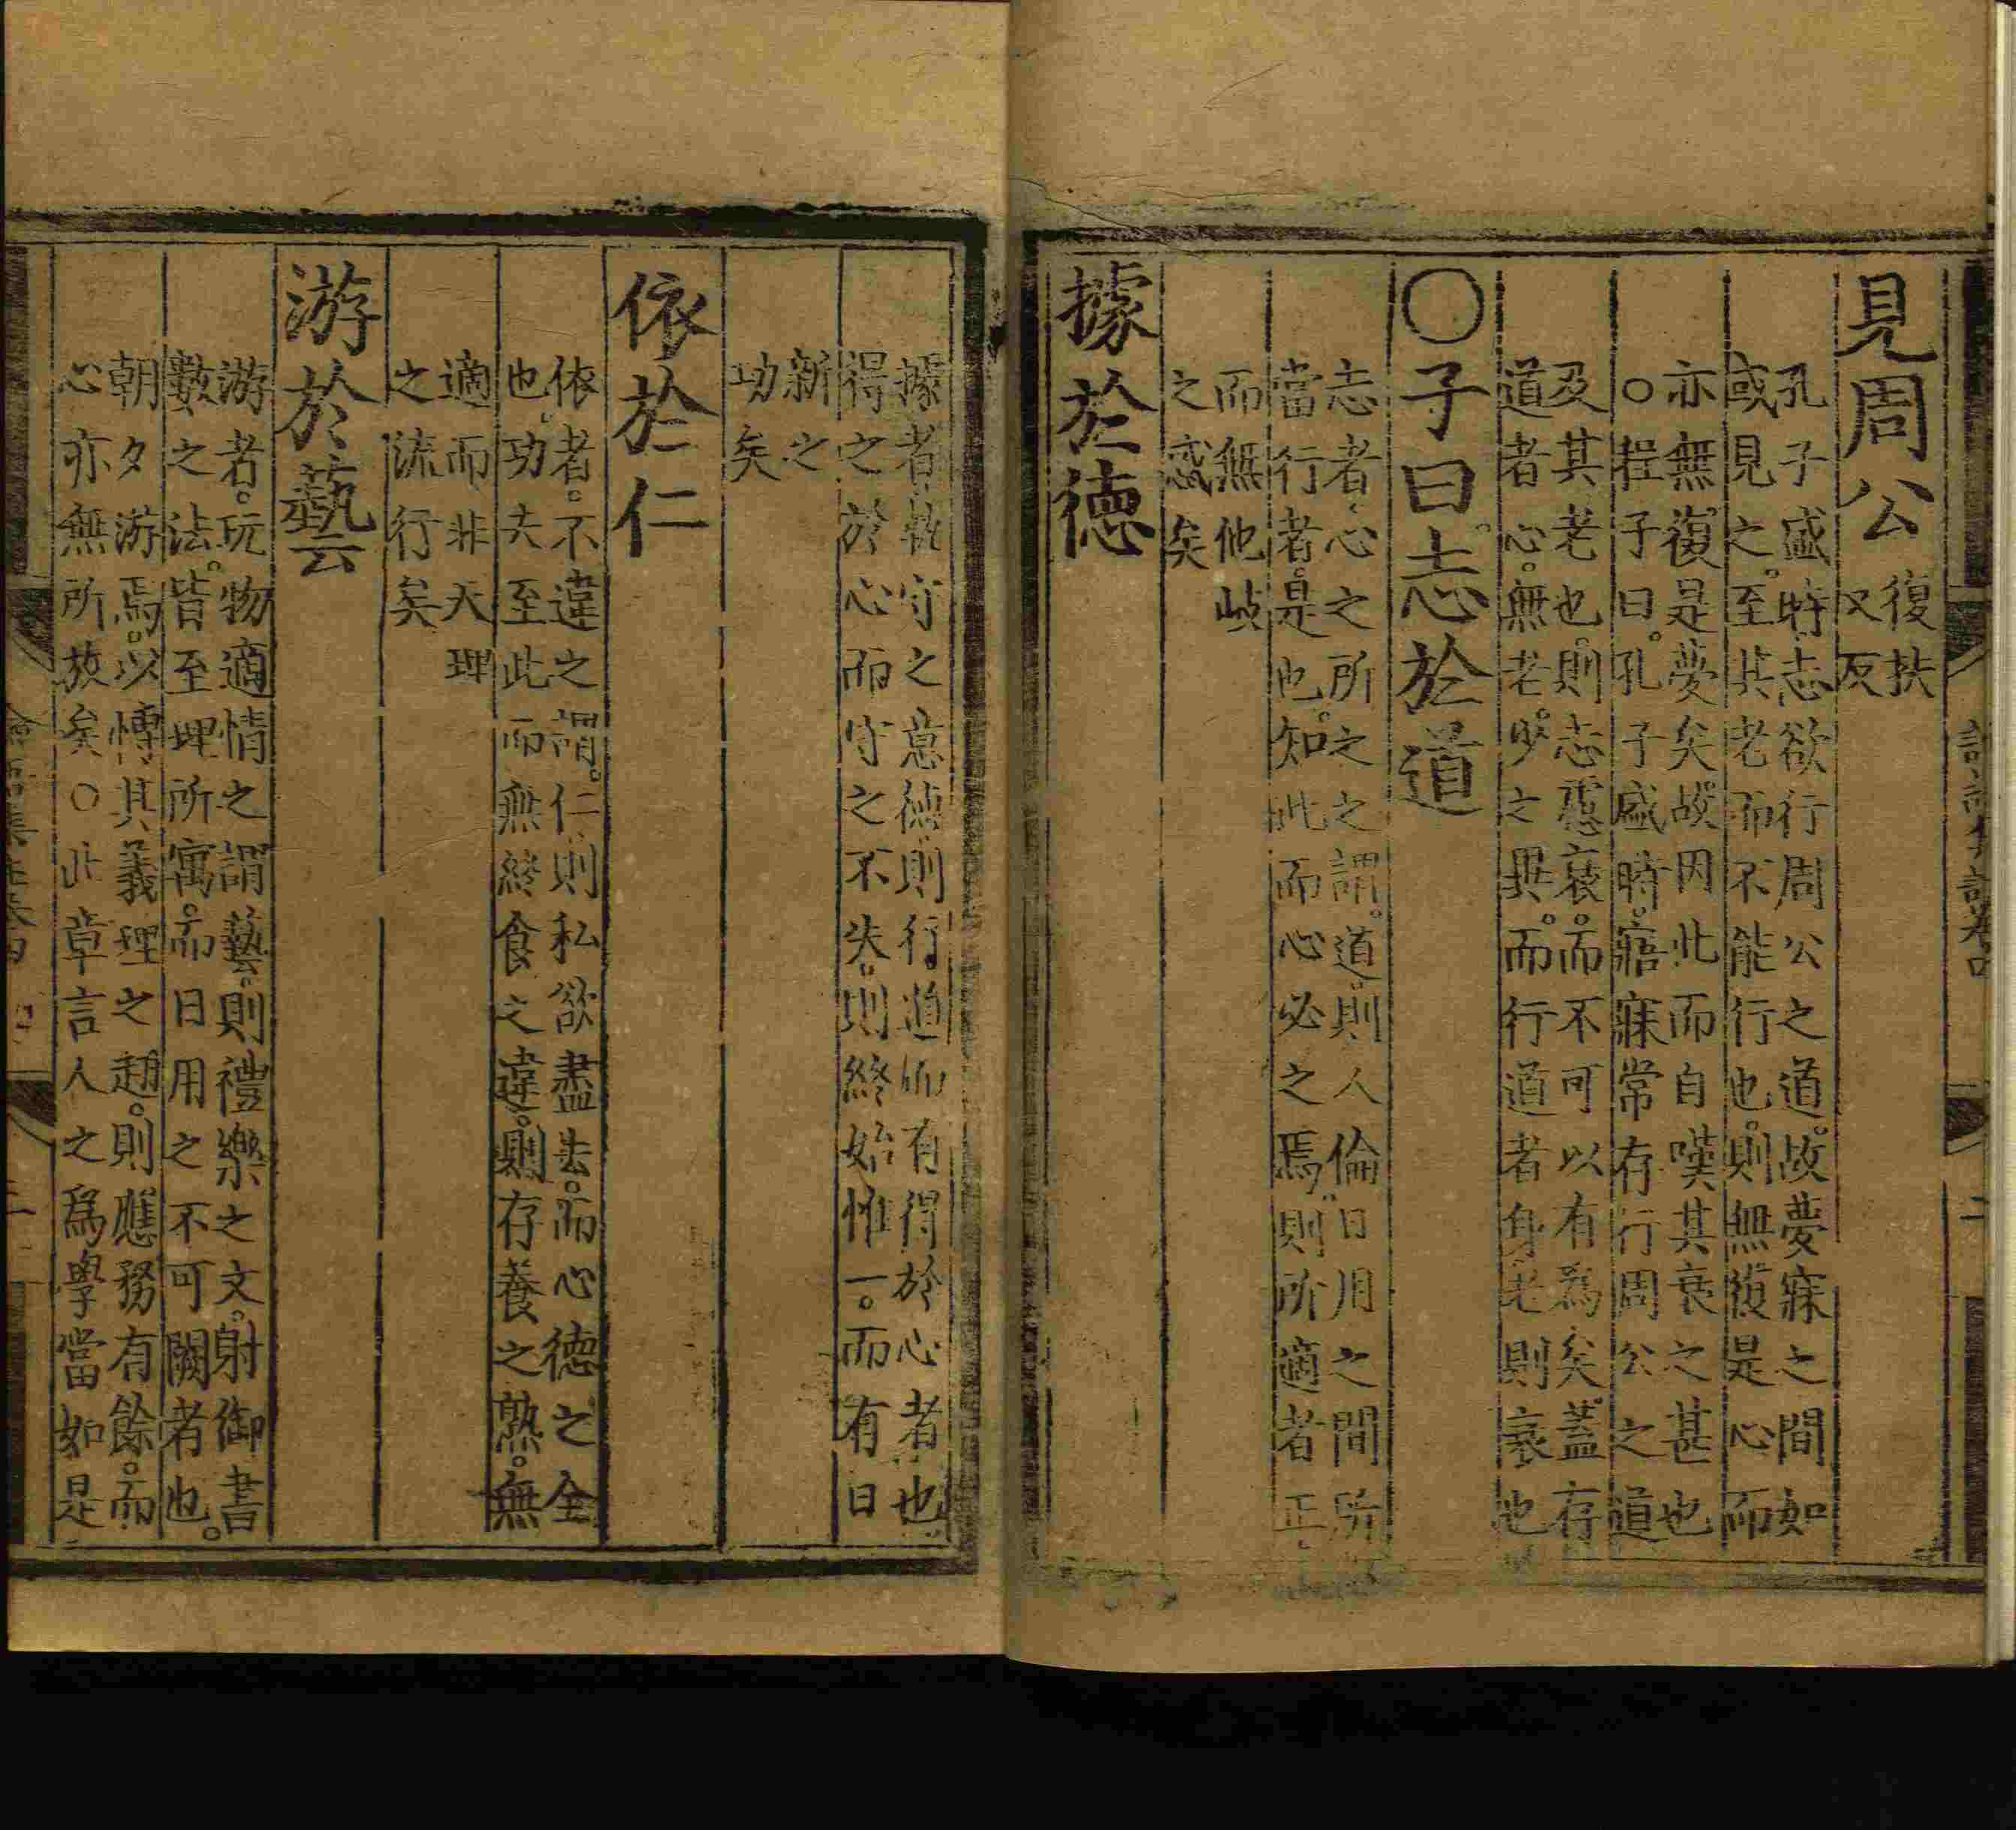 見周公復扶
又反
孔子盛時志欲行周公之道故夢寐之間如
或見之至其老而不能行也則無復是心而
亦無復是夢矣故因此而自嘆其衰之甚也
○程子曰孔子盛時寤寐常存行周公之道
及其老也則志慮衰而不可以有爲矣蓋存
道者心無老少之異而行道者身老則衰也
○子曰志於道
志者心之所之之謂道則人倫日用之間所
當行者是也知此而心必之焉則所適者正
而無他岐
之惑矣
據於德
據者執守之意德則行道而有得於心者也
得之於心而守之不失則終始惟一而有日
新之
功矣
依於仁
依者不違之謂仁則私欲盡去而心德之全
也功夫至此而無終食之違則存養之熟無
適而非天理
之流行矣
游於藝
游者玩物適情之謂藝則禮樂之文射御書
數之法皆至理所寓而日用之不可闕者也
朝夕游焉以博其義理之趣則應務有餘而
心亦無所放矣○此章言人之爲學當如是